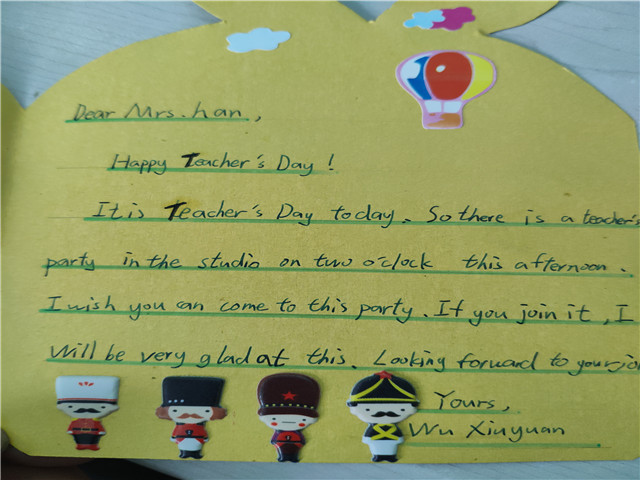 Dear Mrs. han,
Happy Teacher's Day!
It is Teacher's Day today. So there is a teacher's
party in the studio on two o'clock this afternoon.
I wish you can come to this party. If you join it, I
will be very glad at this. Looking forward to your
Yours,
Wu Xinyuan